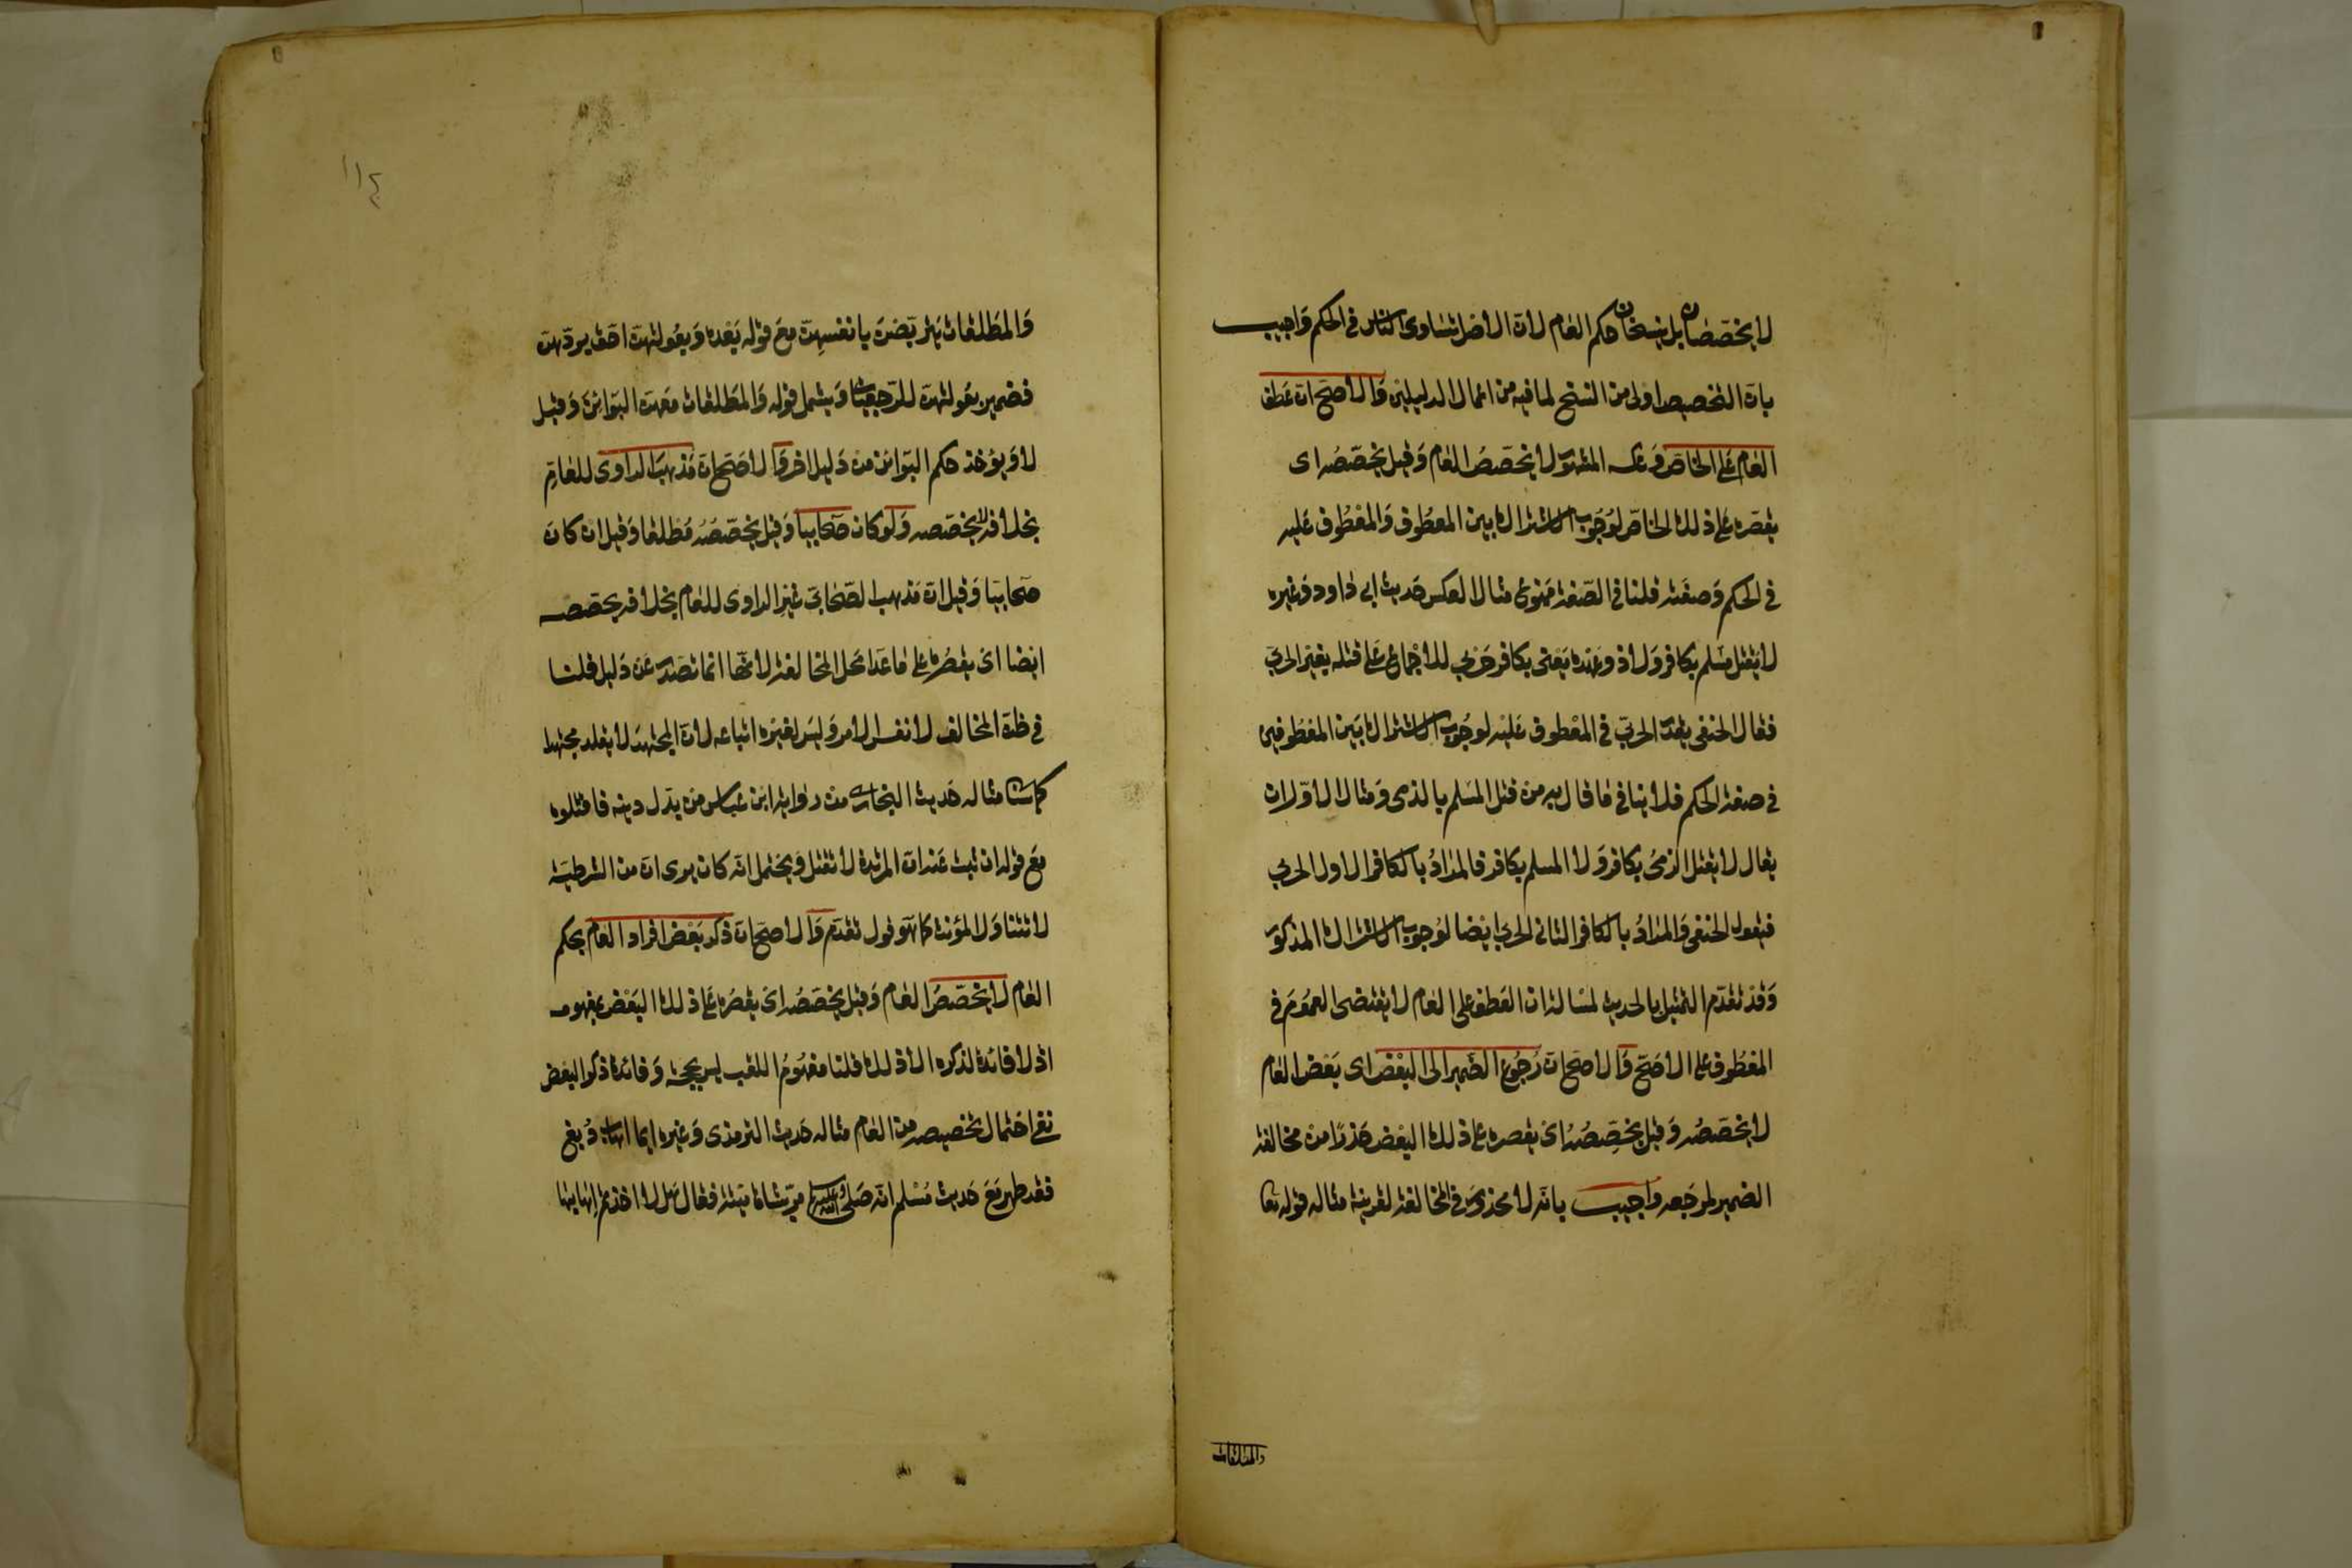 لا يخصصان بل ينسخان حكم العام لان الاصل تساوى الناس فى الحكم واجيب
بان التخصيص اولى من النسخ لما فيه من اعمال الدليلين والاصح ان عطف
العام على الخاص وعكسه المشهور لا يخصص العام وقيل يخصصه اى
يقصره على ذلك الخاص لوجوب الاشتراك بين المعطوف والمعطوف عليه
فى الحكم وصفته قلنا فى الصفة ممنوع مثال العكس حديث ابى داود وغيره
لا يقتل مسلم بكافر ولا ذو عهد فى عهده يعنى بكافر حربى للاجماع على قتله بغير الحربى
فقال الحنفى يقدر الحربى فى المعطوف عليه لوجوب الاشتراك بين المعطوفين
فى صفة الحكم فلا ينافى ما قال به من قتل المسلم بالذمى ومثال الاول ان
يقال لا يقتل الذمى بكافر ولا المسلم بكافر فالمراد بالكافر الاول الحربى
فيقول الحنفى والمراد بالكافر الثانى الحربى ايضا لوجوب الاشتراك المذكور
وقد تقدم التمثيل بالحديث لمسالة ان العطف على العام لا يقتضى العموم فى
المعطوف على الاصح والاصح ان رجوع الضمير الى البعض اى بعض العام
لا يخصصه وقيل يخصصه اى يقصره على ذلك البعض حذرا من مخالفة
الضمير لمرجعه واجيب بانه لا محذور فى المخالفة لقرينة مثاله قوله تعا
والمطلقات
١١٤
والمطلقات يتربصن بانفسهن مع قوله بعده وبعولتهن احق بردهن
فضمير بعولتهن للرجعيات ويشمل قوله والمطلقات معهن البوائن وقيل
لا ويؤخذ حكم البوائن من دليل اخر والاصح ان مذهب الراوى للعام
بخلافه لا يخصصه ولو كان صحابيا وقيل يخصصه مطلقا وقيل ان كان
صحابيا وقيل ان مذهب الصحابى غير الراوى للعام بخلافه يخصصه
ايضا اى يقصره على ما عدا محل المخالفة لانها انما تصدر عن دليل قلنا
فى ظن المخالف لا نفس الامر وليس لغيره اتباعه لان المجتهد لا يقلد مجتهدا
كما سيأتى مثاله حديث البخارى من رواية ابن عباس من بدل دينه فاقتلوه
مع قوله ان ثبت عنه ان المرتدة لا تقتل ويحتمل انه كان يرى ان من الشرطية
لا تتناول المؤنث كما هو قول تقدم والاصح ان ذكر بعض افراد العام بحكم
العام لا يخصص العام وقيل يخصصه اى يقصره على ذلك البعض بمفهومه
اذ لا فائدة لذكره الا ذلك قلنا مفهوم اللقب ليس بحجة وفائدة ذكر البعض
نفى احتمال تخصيصه من العام مثاله حديث الترمذى وغيره ايما اهاب دبغ
فقد طهر مع حديث مسلم انه صلى الله عليه وسلم مر بشاة ميتة فقال هل لا اخذتم اهابها